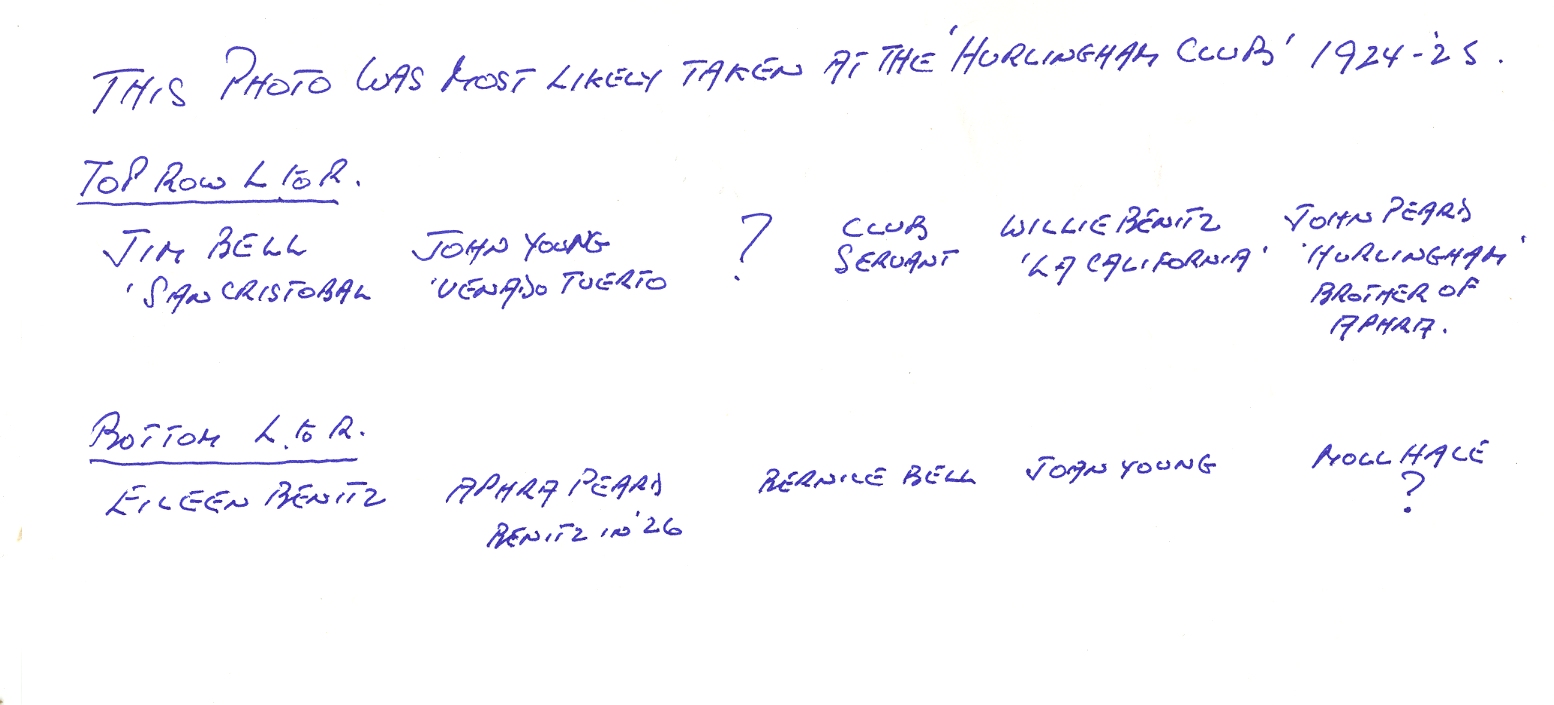 THIS PHOTO WAS MOST LIKELY TAKEN AT THE 'HURLINGHAM CLUB' 1924-'25.
TOP ROW L. to R.
JIM BELL JOHN YOUNG ? CLUB WILLIE BENITZ JOHN PEARD
'SAN CRISTOBAL 'VENADO TUERTO SERVANT 'LA CALIFORNIA' 'HURLINGHAM'
BROTHER OF
APHRA.
BOTTOM L. to R.
EILEEN BENITZ APHRA PEARD BERNICE BELL JOAN YOUNG MOLL HALE
BENITZ IN '26 ?